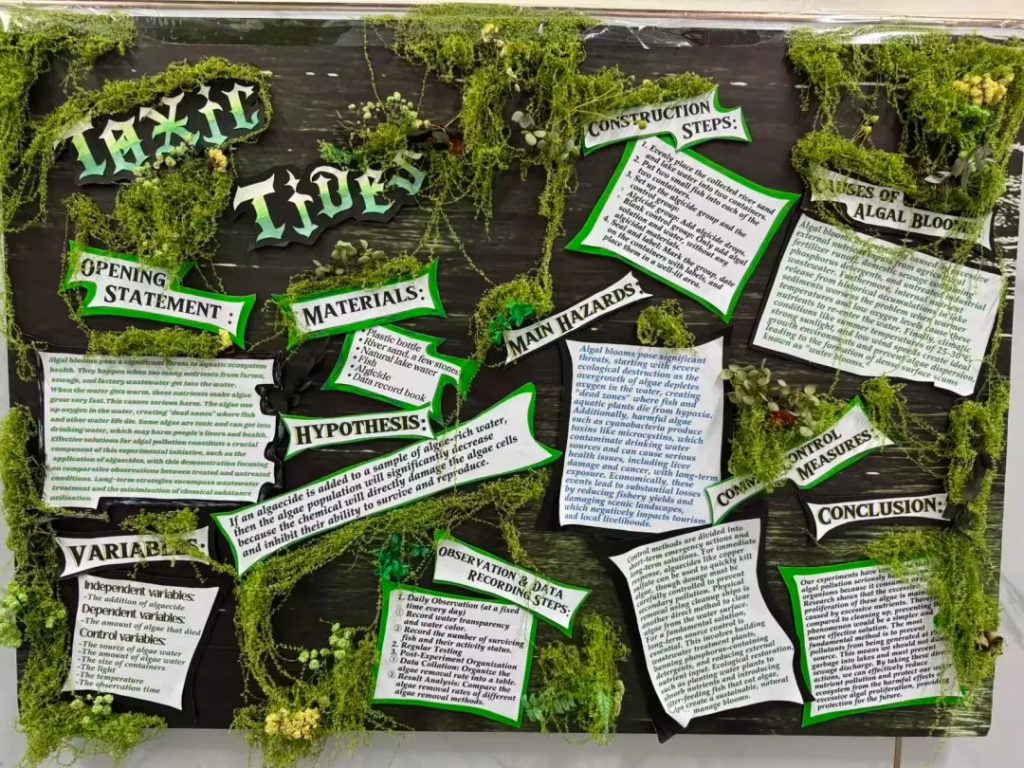 TOXIC
TIDES
OPENING
STATEMENT :
Algal blooms pose a significant threat to aquatic ecosystem
health. They happen when too many nutrients from farms,
sewage, and factory wastewater get into the water.
When the water gets warm, these nutrients make algae
grow very fast. This causes serious harm. The algae use
up oxygen in the water, creating "dead zones" where fish
and other water life die. Some algae are toxic and can get into
drinking water, which may harm people's livers and health.
Effective solutions for algal pollution constitute a crucial
component of this experimental initiative, such as the
application of algaecides, with this demonstration focusing
on comparative observations between treated and untreated
conditions. Long-term strategies encompass wastewater
treatment and the minimization of chemical substance
utilisation.
MATERIALS:
Plastic bottle
River sand, a few stones
Natural lake water
Fish
Algicide
Data record book
HYPOTHESIS:
If an algaecide is added to a sample of algae-rich water,
then the algae population will significantly decrease
because the chemical will directly damage the algae cells
and inhibit their ability to survive and reproduce.
VARIABLES:
Independent variables:
-The addition of algaecide
Dependent variables:
-The amount of algae that died
Control variables:
-The source of algae water
-The amount of algae water
-The size of containers
-The light
-The temperature
-The observation time
CONSTRUCTION
STEPS:
1. Evenly place the collected river sand
and lake water into two containers.
2. Put two small fish into each of the
two containers.
3. Set up the algicide group and the
control group:
Algicide group: Add algicide drops.
Blank control group: Only add algae
solution and water, without any
algicidal materials.
4. Seal and label: Mark the group, date
on the containers with labels, and
place them in a well-lit area.
MAIN HAZARDS:
Algal blooms pose significant
threats, starting with severe
ecological destruction as the
overgrowth of algae depletes
oxygen in the water, creating
"dead zones" where fish and
aquatic plants die from hypoxia.
Additionally, harmful algae
such as cyanobacteria produce
toxins like microcystins, which
contaminate drinking water
sources and can cause serious
health issues, including liver
damage and cancer, with long-term
exposure. Economically, these
events lead to substantial losses
by reducing fishery yields and
damaging scenic landscapes,
which negatively impacts tourism
and local livelihoods.
OBSERVATION & DATA
RECORDING STEPS:
1. Daily Observation (at a fixed
time every day)
① Record water transparency
and water color.
② Record the number of surviving
fish and their activity status.
2. Regular Testing
3. Post-Experiment Organization
① Data Collation: Organize the
algae removal rate into a table.
② Result Analysis: Compare the
algae removal rates of different
algae removal methods.
CAUSES OF
ALGAL BLOOM
Algal blooms
external nutrient
fertilizers, domestic sewage
phosphorus detergents, and untreated industrial
wastewater. Furthermore, internal nutrient
release from historically accumulated
sediments worsens the problem when warmer
temperatures and low oxygen levels cause these
nutrients to re-enter the water. Finally, climate
conditions like summer temperatures of 25-30°C,
strong sunlight, and low wind speeds create ideal
growth environments and prevent algae dispersion,
leading to the formation of dense surface scums
known as "water blooms."
CONTROL
MEASURES:
Control methods are divided into
short-term emergency actions and
long-term solutions. For immediate
response, algaecides like copper
sulfate can be used to quickly kill
algae, but the dosage must be
carefully controlled to prevent
secondary pollution. Physical
removal using cleanup ships is
another fast method to clear
algae from the water surface.
wastewater treatment plants,
banning phosphorus-containing
detergents, and reducing external
nutrient inputs. Ecological restoration,
such as planting aquatic plants to
absorb nutrients and introducing
filter-feeding fish that eat algae,
helps create a sustainable, natural
manage bloom.
CONCLUSION:
Our experiments have
algal pollution seriously
organisms because it
Research shows that the excessive
proliferation of these algae is mainly
caused by excessive nutrients. Therefore,
compared to cleaning up, preventing this
phenomenon would be a simpler and
more effective solution. The most
fundamental method is to prevent
pollutants from being produced at the
source. This means we should not throw
garbage into lakes and must prevent
sewage discharge. By taking these
actions, we can effectively reduce
nutrient pollution and protect the
ecosystem from the harmful effects of
excessive algal proliferation, providing
protection for the future.